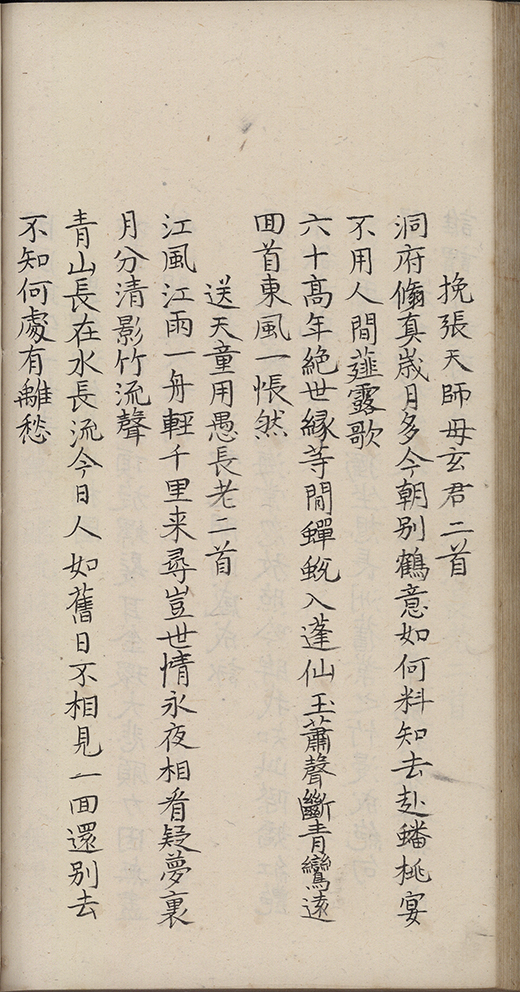 挽張天師母玄君二首
洞府脩真歳月多今朝别鶴意如何料知去赴蟠桃宴
不用人間薤露歌
六十髙年絶世縁等閒蟬蛻入蓬仙玉蕭聲斷青鸞逺
囬首東風一悵然
送天童用愚長老二首
江風江雨一舟輕千里来尋豈世情永夜相看疑夢裏
月分清影竹流聲
青山長在水長流今日人如舊日不相見一面還别去
不知何處有離愁